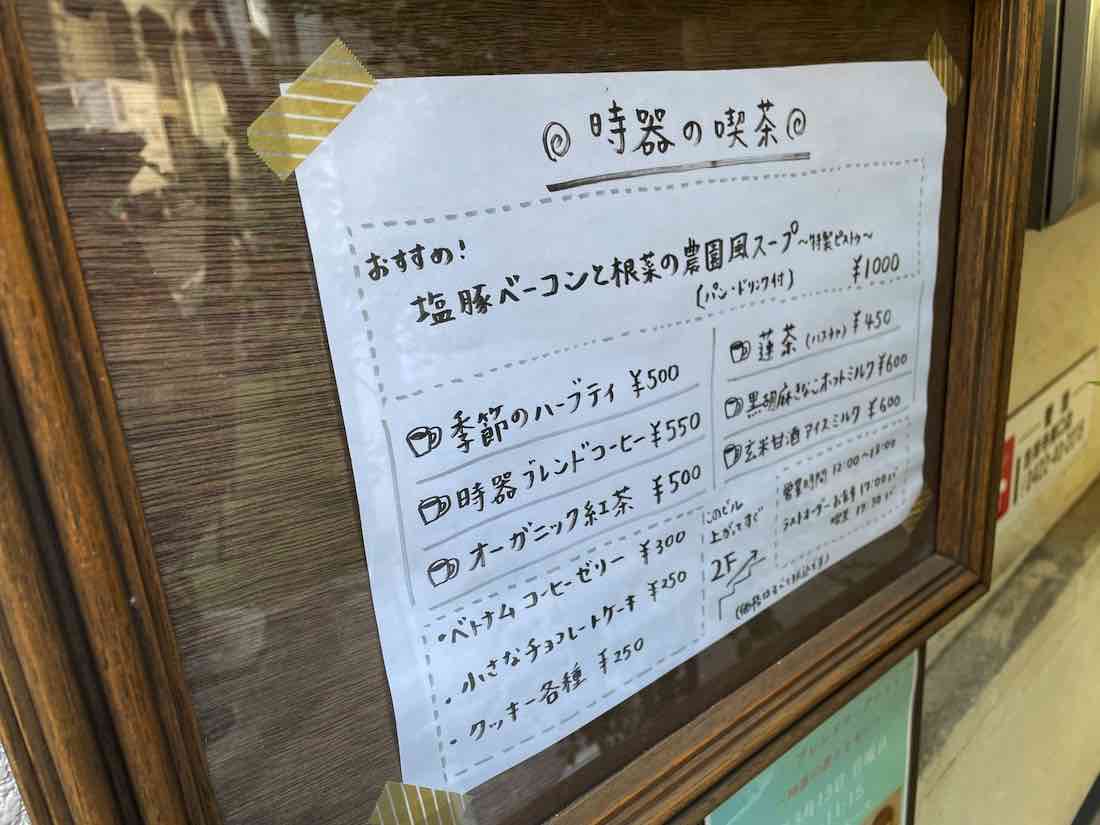 時器の喫茶
おすすめ!
塩豚ベーコンと根菜の農園風スープ〜特製ピストゥ〜
(パン・ドリンク付) ¥1000
季節のハーブティ ¥500
時器ブレンドコーヒー ¥550
オーガニック紅茶 ¥500
蓮茶(ハスチャ) ¥450
黒胡麻きなこホットミルク ¥600
玄米甘酒アイスミルク ¥600
・ベトナムコーヒーゼリー ¥300
・小さなチョコレートケーキ ¥250
・クッキー各種 ¥250
このビル
上がってすぐ
2F
営業時間 12:00~18:00
ラストオーダー お食事 17:00まで
喫茶 17:30まで
(価格はすべて税込です)